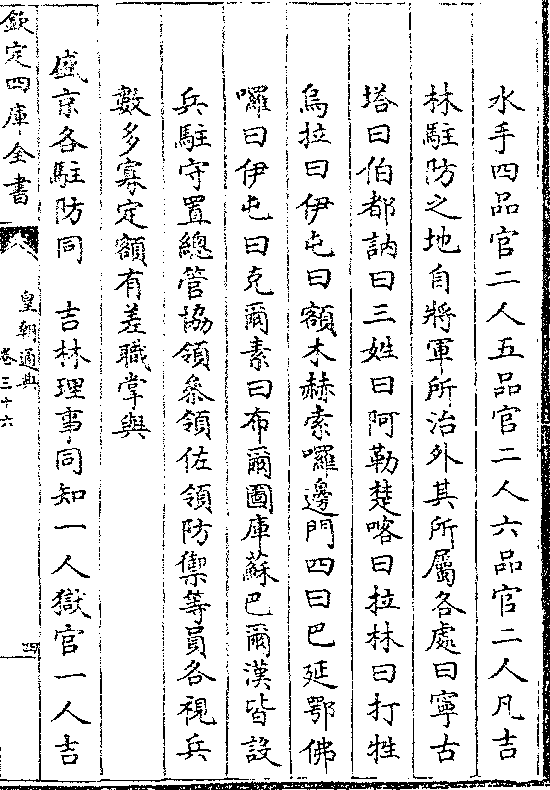 水手四品官二人五品官二人六品官二人凡吉
林駐防之地自將軍所治外其所屬各處曰寧古
塔曰伯都訥曰三姓曰阿勒楚喀曰拉林曰打牲
烏拉曰伊屯曰額木赫索囉邊門四曰巴延鄂佛
囉曰伊屯曰克爾素曰布爾圖庫蘇巴爾漢皆設
兵駐守置總管協領叅領佐領防禦等員各視兵
數多寡定額有差職掌與
盛京各駐防同　吉林理事同知一人獄官一人吉
欽定四庫全書
皇朝通典
卷三十六
四